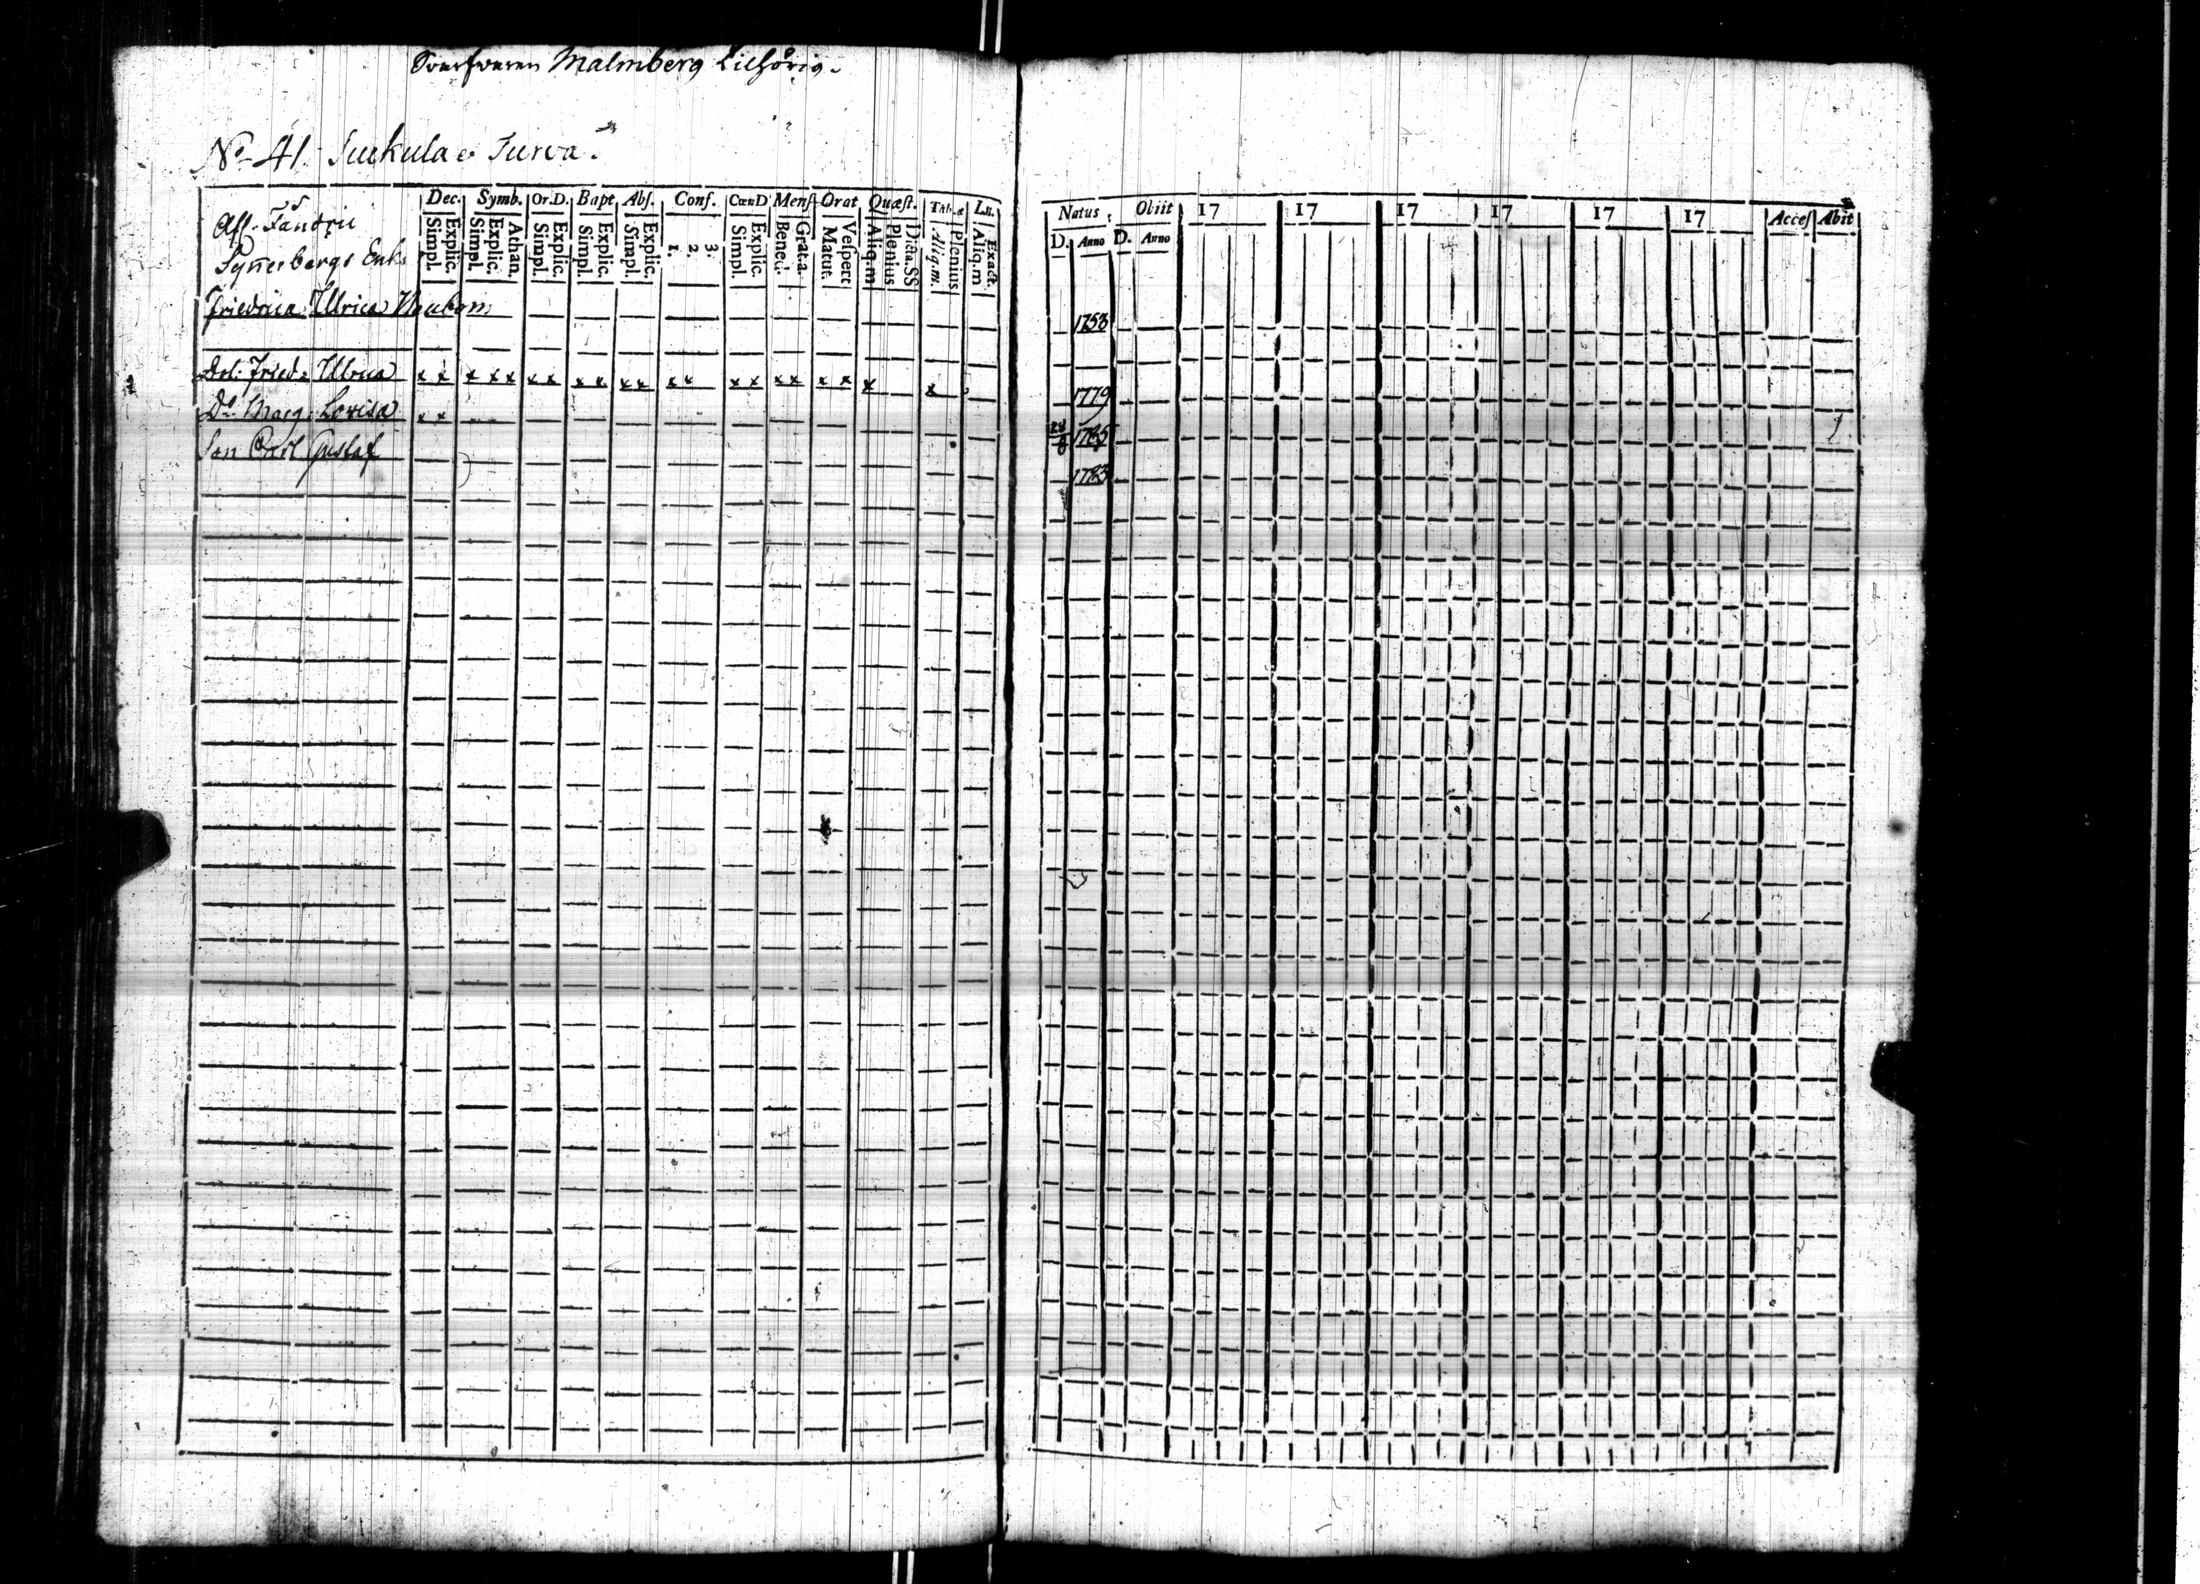 Malmberg tilhörig.
No 41. Suckula o Turva.
Dec. Symb. Or.D. Bapt Abs. Conf. CœnD Mens Orat Quæst. Tab.æ L.
Simpl. Explic. Simpl. Explic. Athan. Simpl. Explic. Simpl. Explic. Simpl. Explic. 1. 2. 3. Simpl. Explic. Bened. Grat.a. Matut. Vespert Aliq.m Plenius Dicta.SS Aliq.m. Plenius Aliq.m Exact.
Natus Obiit 17 17 17 17 17 17 Acces Abit
D. Anno D. Anno
Afl. Fändric
Synnerbergs Enka
Friedrica Ulrica 1758
Dot. Fried: Ulrica x x x x x x x x x x x x x x x x x x x x x 1779
Do Marg: Lovisa x x 28/8 1785
Son Carl Gustaf 1783